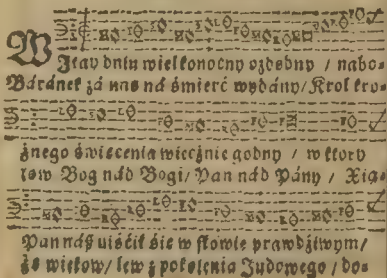 Witay dniu wielkonocny ozdobny / nabo-
Báránek zá nas ná śmierć wydány/ Krol kro-
żnego święcenia wiecznie godny / w ktory
low Bog nád Bogi/ Pan nád Pány / Xią-
Pan náß uiśćił się w słowie prawdźiwym/
żę wiekow/ lew z pokolenia Judowego / do-